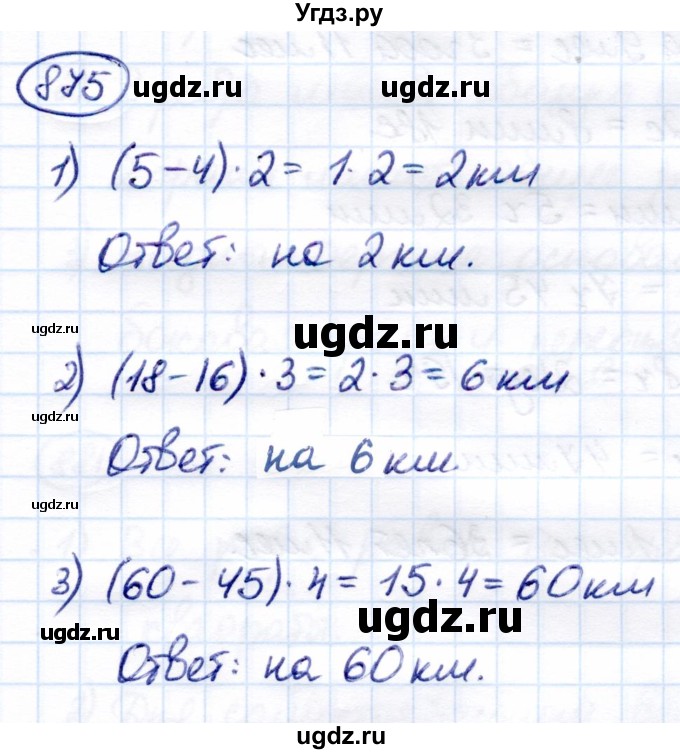 Угдз.ру
875
ugdz.ru ugdz.ru
1) (5-4)·2= 1·2=2км
Ответ: на 2км.
ugdz.ru
ugdz.ru
2) (18-16)·3=2·3=6км
ugdz.ru
Ответ: на 6км.
ugdz.ru
3) (60-45)·4=15·4=60км
ugdz.ru
ugdz.ru
Ответ: на 60км.
ugdz.ru